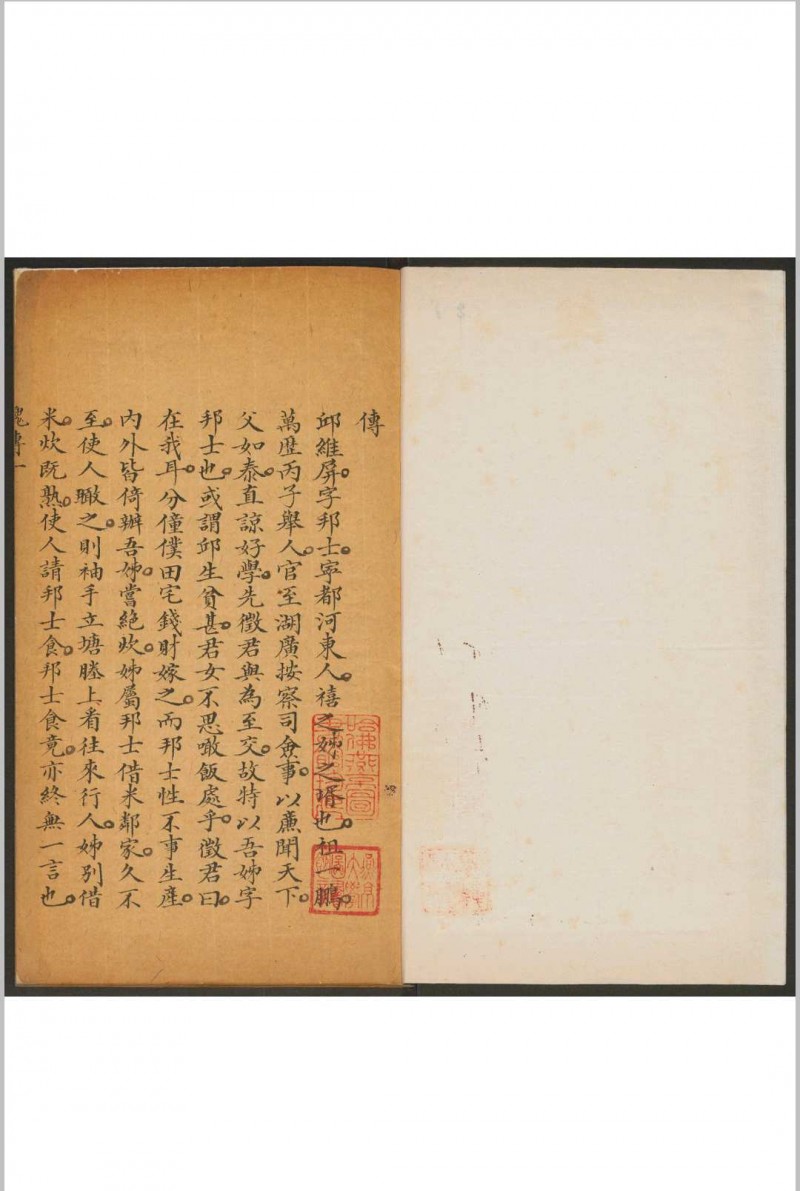 傳
邱維屏字邦士寧都河東人禧之姊之壻也祖一鵬
萬歷丙子舉人官至湖廣按察司僉事以廉聞天下
父如泰直諒好學先徵君與為至交故特以吾姊字
邦士也或謂邱生貧甚君女不思噉飯處乎徵君曰
在我耳分僮僕田宅錢財嫁之而邦士性不事生產
內外皆倚辦吾姊嘗絕炊姊屬邦士借米鄰家久不
至使人瞰之則袖手立塘塍上看往來行人姊別借
米炊既熟使人請邦士食邦士食竟亦終無一言也